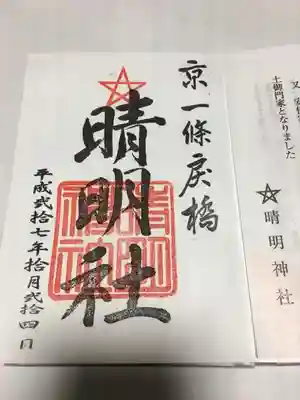 京一條戻橋
晴明社
平成弐拾七年拾月弐拾四日
土御門家となりました
晴明神社